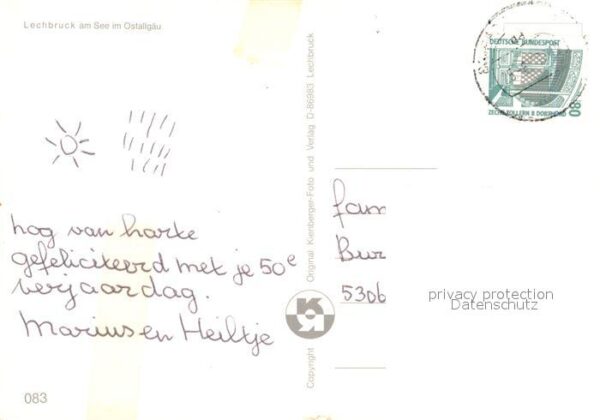 Lechbruck am See im Ostallgäu
hog van harte
gefeliciteerd met je 50e
verjaardag.
Marius en Heiltje
083
Copyright Original Kienberger-Foto und Verlag D-86983 Lechbruck
DEUTSCHE BUNDESPOST
80
ZECHE ZOLLERN II DORTMUND
fam
Bur
5306
privacy protection
Datenschutz